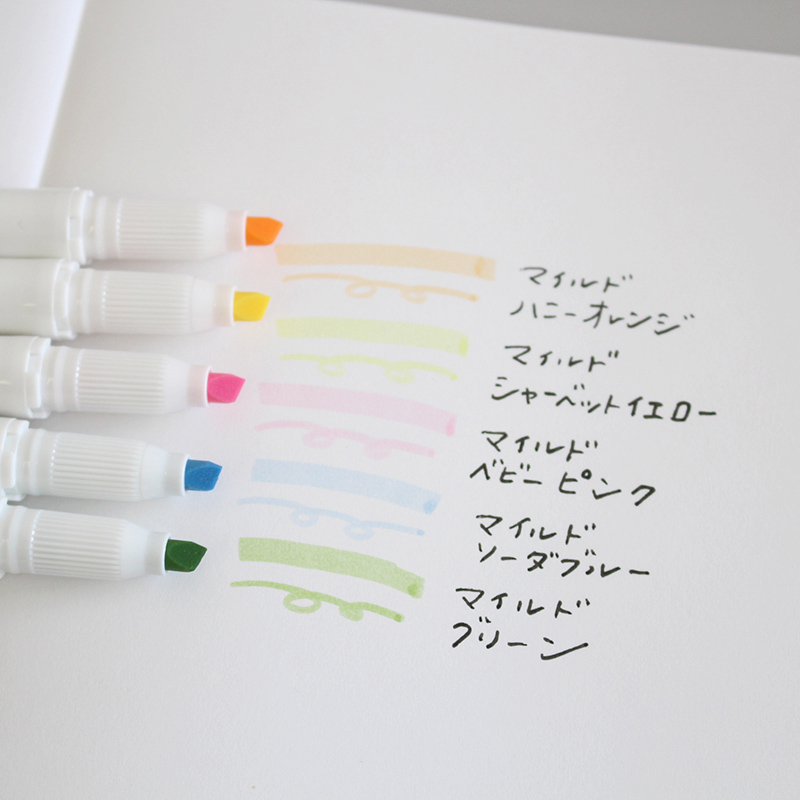 マイルド
ハニーオレンジ
マイルド
シャーベットイエロー
マイルド
ベビーピンク
マイルド
ソーダブルー
マイルド
グリーン